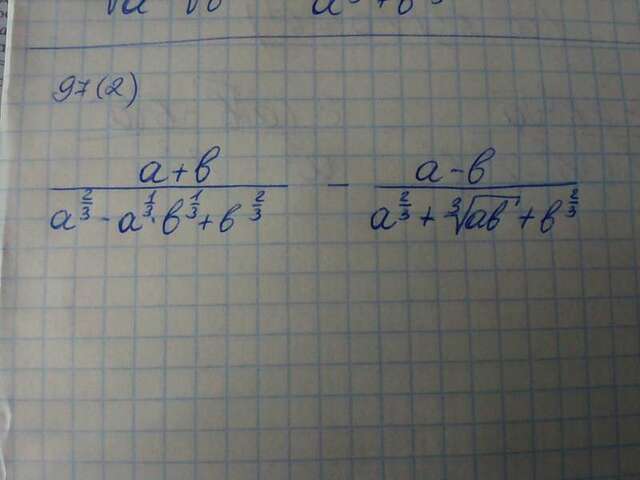 97(2)
a+b / (a^(2/3) - a^(1/3) · b^(1/3) + b^(2/3)) - (a-b) / (a^(2/3) + ∛(ab) + b^(2/3))